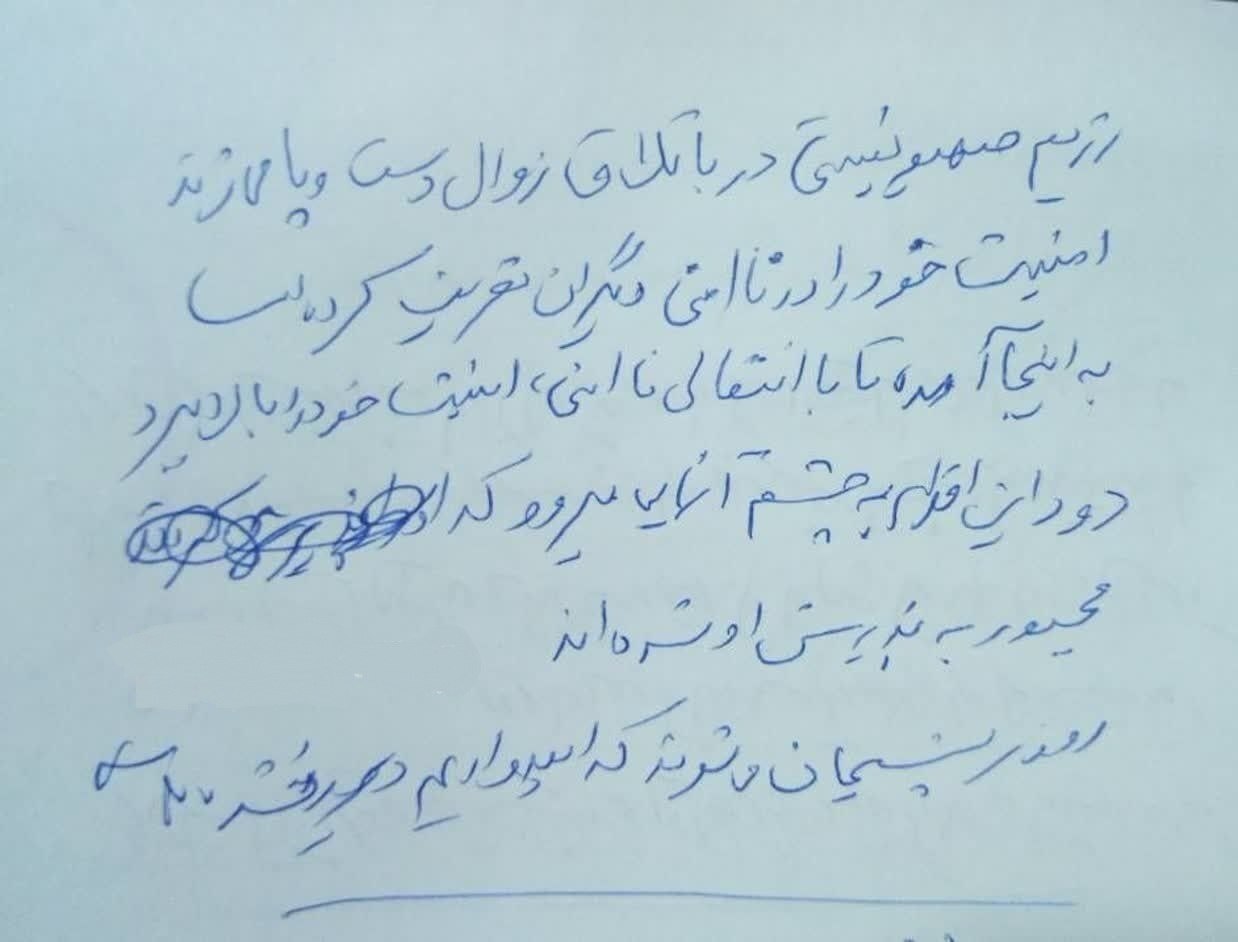 رژیم صهیونیستی در باتلاق زوال دست و پا می زند
امنیت خود را در ناامنی دیگران تعریف کرده است
به اینجا آمده تا با انتقال ناامنی، امنیت خود را بالا ببرد
دود این اقدام به چشم آنهایی میرود که
مجبور به پذیرش او شده اند
روزی پشیمان می شوند که امیدواریم دیر نشده باشد